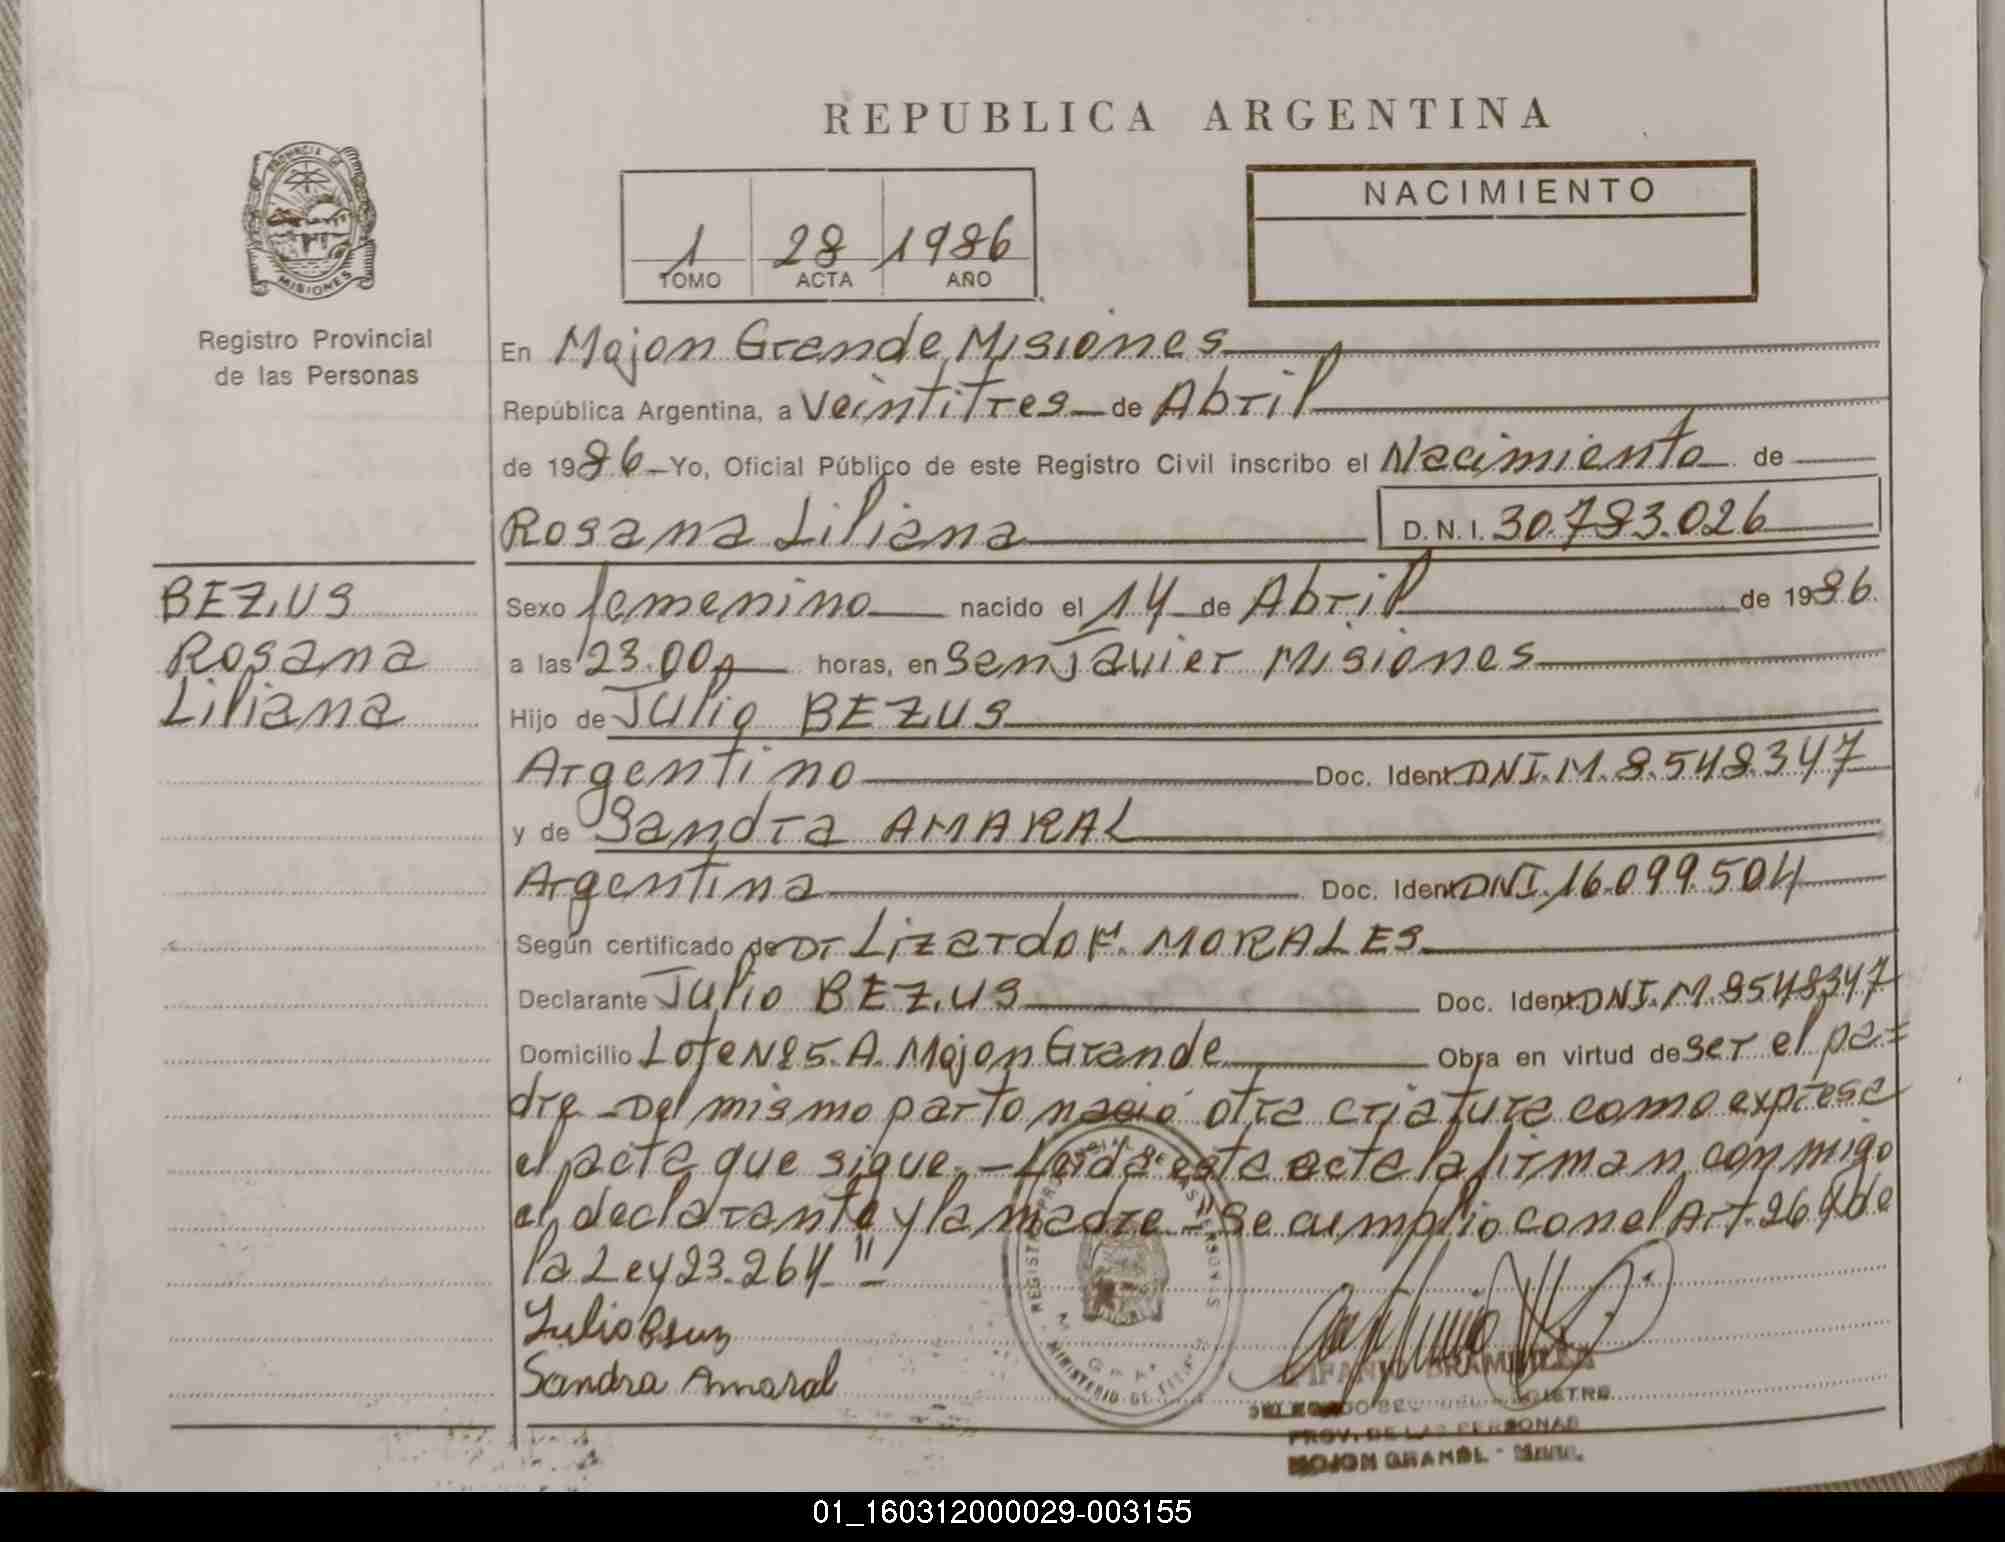 REPUBLICA ARGENTINA
PROVINCIA DE
MISIONES
Registro Provincial
de las Personas
1 28 1986
TOMO ACTA AÑO
NACIMIENTO
En Mojon Grande, Misiones
República Argentina, a Veintitres de Abril
de 1986 Yo, Oficial Público de este Registro Civil inscribo el Nacimiento de
Rosana Liliana D.N.I. 30.783.026
BEZUS
Rosana
Liliana
Sexo femenino nacido el 14 de Abril de 1986.
a las 23.00 horas, en San Javier Misiones
Hijo de Julio BEZUS
Argentino Doc. Ident. DNI. M. 8.548.347
y de Sandra AMARAL
Argentina Doc. Ident. DNI. 16.099.504
Según certificado de Dr Lizardo F. MORALES
Declarante Julio BEZUS Doc. Ident. DNI. M. 8548347
Domicilio Lote Nº 5. A. Mojon Grande Obra en virtud de ser el pa=
dre - Del mismo parto nació otra criatura como expresa
el acta que sigue. - Leida este acta la firman conmigo
el declarante y la madre - "Se cumplio con el Art. 26 de
la Ley 23.264" -
Julio Bezus
Sandra Amaral
MINISTERIO DE
DELEGADO REGISTRO
PROV. DE LAS PERSONAS
MOJON GRANDE - Mnes.
01_160312000029-003155